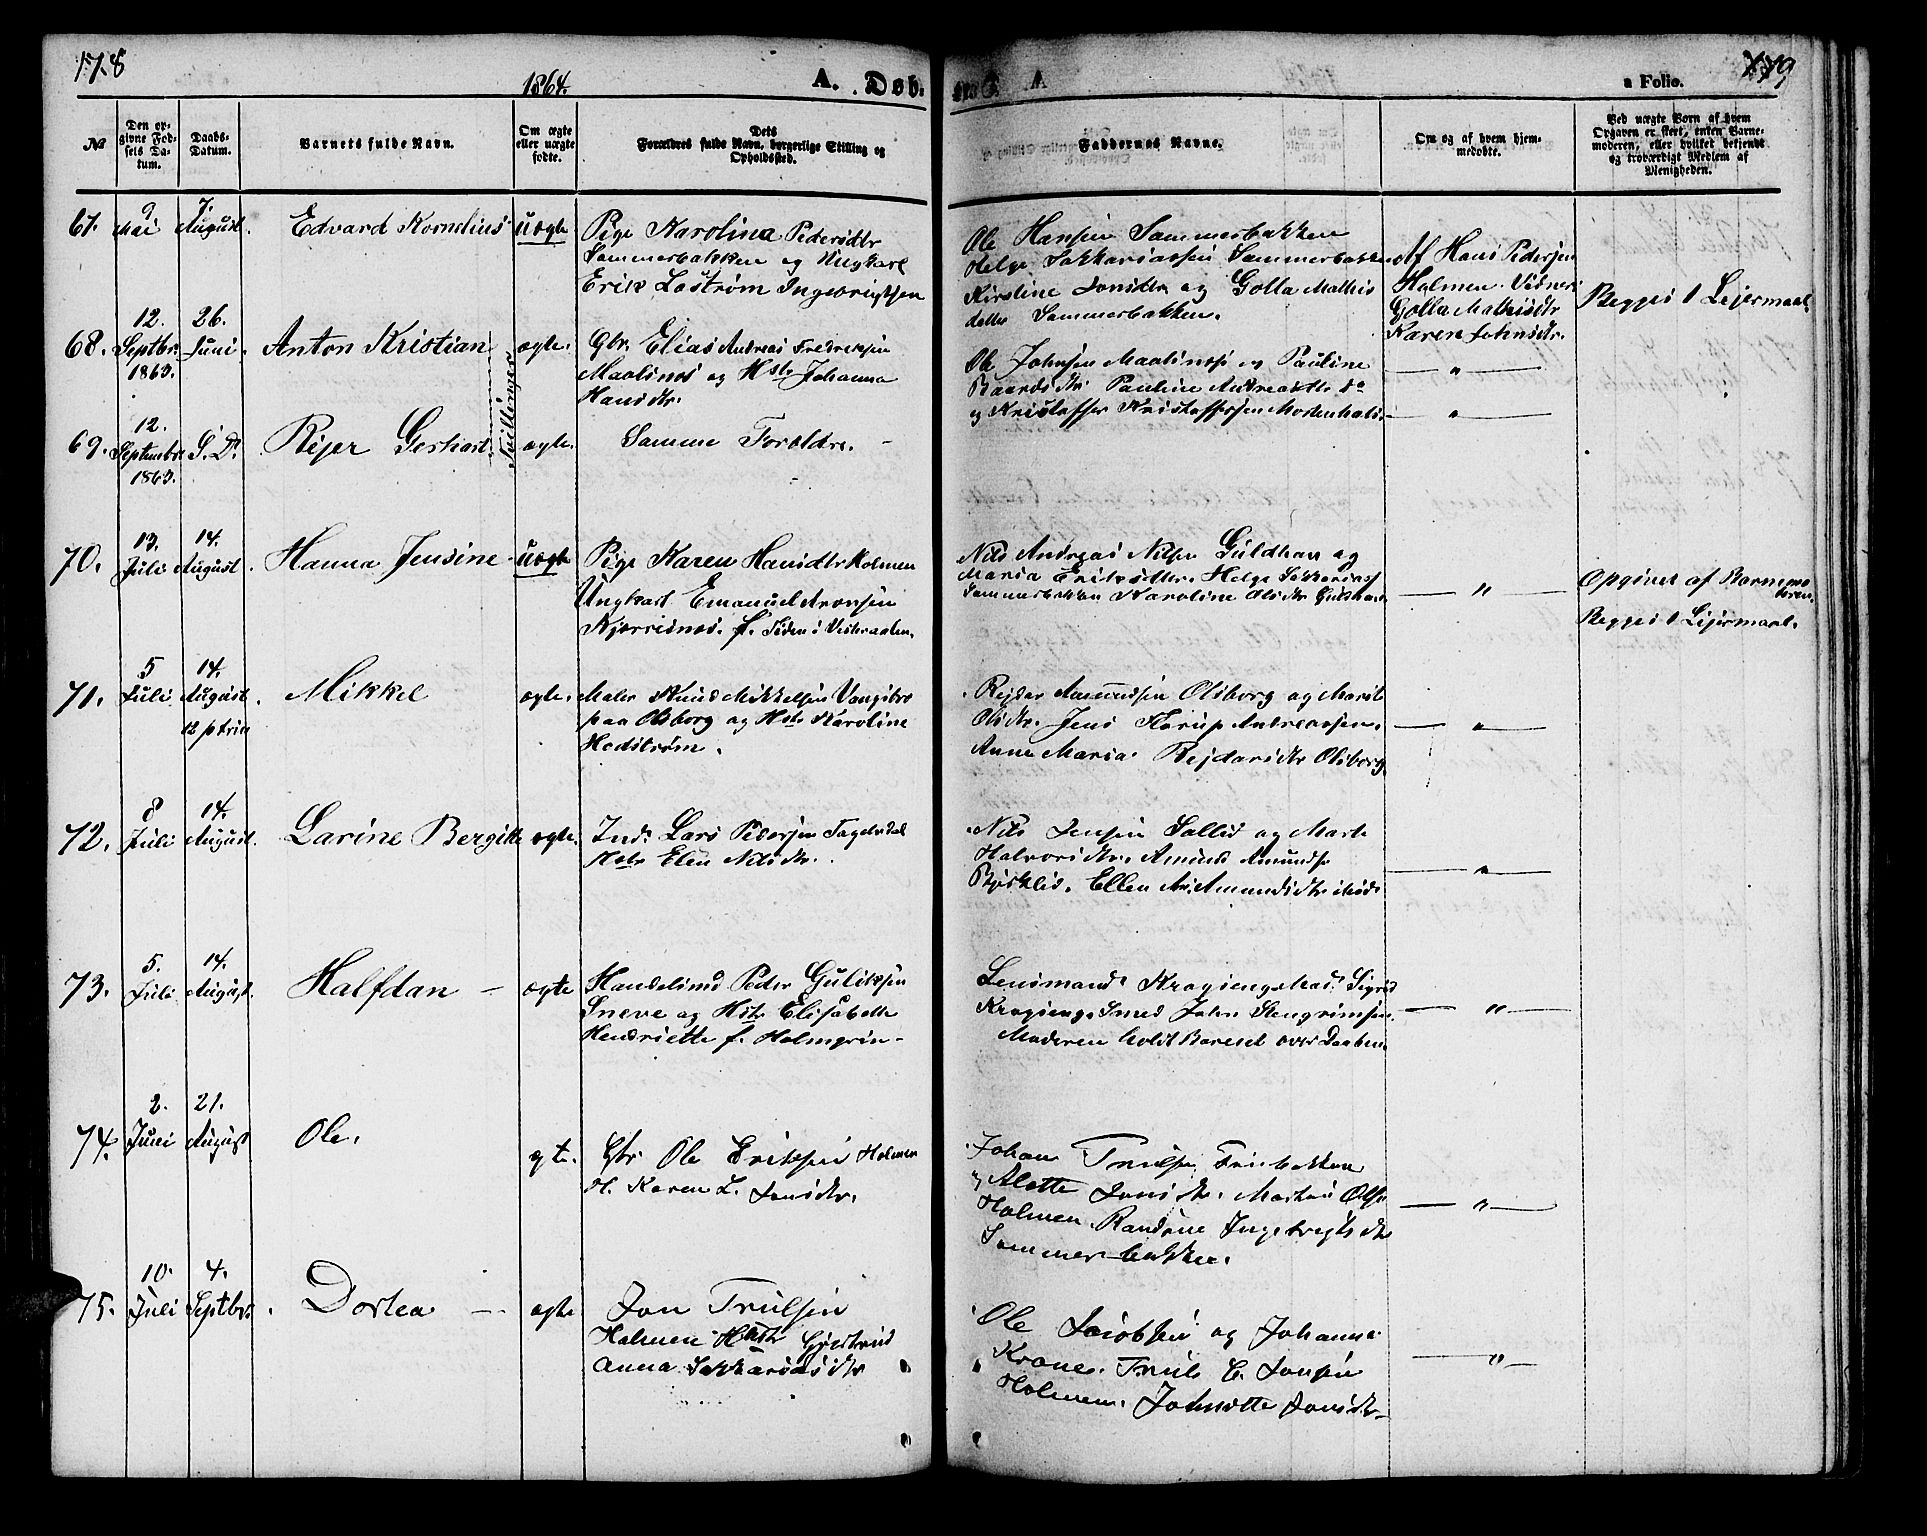 178
1864.
A. Døb.
179
a Folio.
No
Den opgivne Fødsels Datum.
Daabs-Datum.
Barnets fulde Navn.
Om ægte eller uægte fødte.
Dets Forældres fulde Navn, borgerlige Stilling og Opholdssted.
Faddernes Navne.
Om og af hvem hjemmedøbte.
Ved uægte Børn af hvem Opgaven er skeet, enten Barnemoderen, eller hvilket bekjendt og troværdigt Medlem af Menigheden.
67. 9 Mai 7. August. Edvard Kornelius uægte
Pige Karolina Pedersdtr
Sommerbakken og Ungkarl
Erik Lostrøm Ingebrigtsen
Ole Hansen Sommerbakken
Helge Sakkariassen Sommerbakken
Kirstine Jonsdtr og Golla Mathis
datter Sommerbakken.
Af Hans Pedersen
Holmen. Vidner:
Golla Mathisdtr
Karen Johnsdtr.
Begges 1 Lejermaal.
68. 12. Septbr. 1863. 26. Juni. Anton Kristian ægte.
Tvillinger
Gbr. Elias Andreas Fredriksen
Moalines og Hstr Johanna
Hansdtr.
Ole Johnsen Maalsnes og Pauline
Baardsdtr. Pauline Andreasdtr do
og Kristoffer Kristoffersen Mortenhals.
— " —
— " —
69. 12. September 1863. S. D. Rejer Gerhart ægte.
Samme Forældre. -
70. 13. Juli 14. August. Hanna Jensine - uægte
Pige Karen Hansdtr Holmen
Ungkarl Emanuel Aronsen
Kjørrisnes. f. Siden i Vesteraalen.
Nils Andreas Nilsen Guldhav og
Maria Eriksdtr. Helge Sakkariass
Sommerbakken Karoline Olsdtr Guldhav
— " —
Opgivet af Barnemo
deren.
Begges 1 Lejermaal.
71. 5 Juli 14. August. 12 p trin Mikkel ægte.
Maler Knud Mikkelsen Vangsbro
paa Olsborg og Hstr Karoline
Hedstrøm.
Rejdar Amundsen Olsborg og Marit
Olsdtr. Jens Karup Andreassen.
Anne Maria Rejdarsdtr Olsborg
— " —
72. 8 Juli 14. August. Larine Bergitte ægte.
Ind. Lars Pedersen Fagerlidal
Hstr Elen Nilsdtr.
Nils Jensen Sollid og Marte
Halvorsdtr. Amund Amunds.
Bjørklid. Ellen Mr. Amundsdtr Moen
— " —
73. 5. Juli 14. August. Halfdan - ægte
Handelsmd Peder Guliksen
Sneve og Hstr Elisabeth
Hendriette f. Holmgrin-
Lensmand Kragseng Mad. Sigrid
Kragseng. Smed John Stengrimsen.
Moderen holdt Barnet over Daaben.
— " —
74. 2. Juni 21. August Ole. ægte.
Gbr. Ole Eriksen Holmen
H. Karen L. Jonsdtr.
Johan Trulsen Friebakken
og Alette Jonsdtr. Morten Olsen
Holmen Randine Ingebregtsdtr
Sommerbakken.
— " —
75. 10. Juli 4. Septbr. Dortea - ægte
Jon Trulsen
Holmen Hstr Gjertrud
Anna Sakkariasdtr
Ole Jacobsen og Johanna
Krone. Truls E. Jonsen
Holmen. Johnette Jonsdtr-
— " —